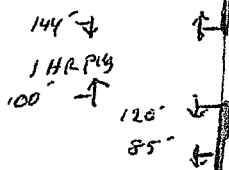 144'
1 HR Plg
100'
120'
85'